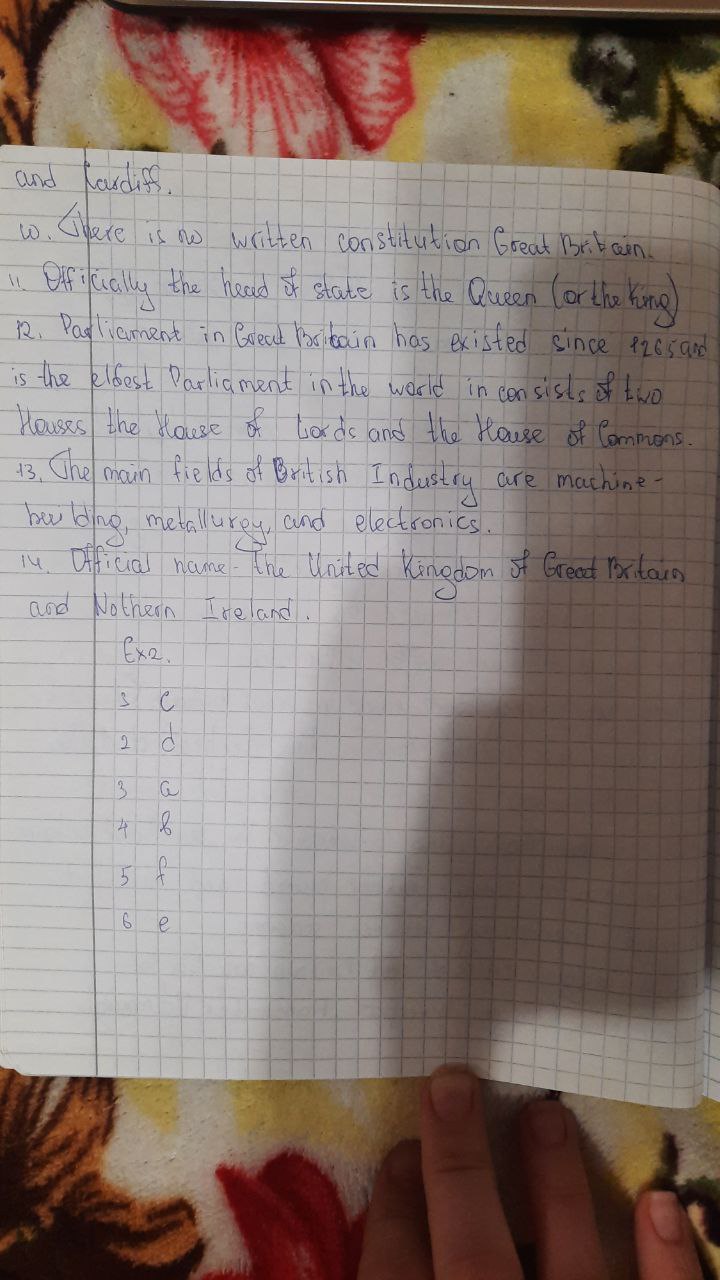 and Kardiff.
10. There is no written constitution Great Britain.
11. Officially the head of state is the Queen (or the King)
12. Parliament in Great Britain has existed since 1265 and
is the eldest Parliament in the world in consists of two
Houses the House of Lords and the House of Commons.
13. The main fields of British Industry are machine-
building, metallurgy, and electronics.
14. Official name - the United Kingdom of Great Britain
and Nothern Ireland.
Ex2.
1 c
2 d
3 a
4 b
5 f
6 e